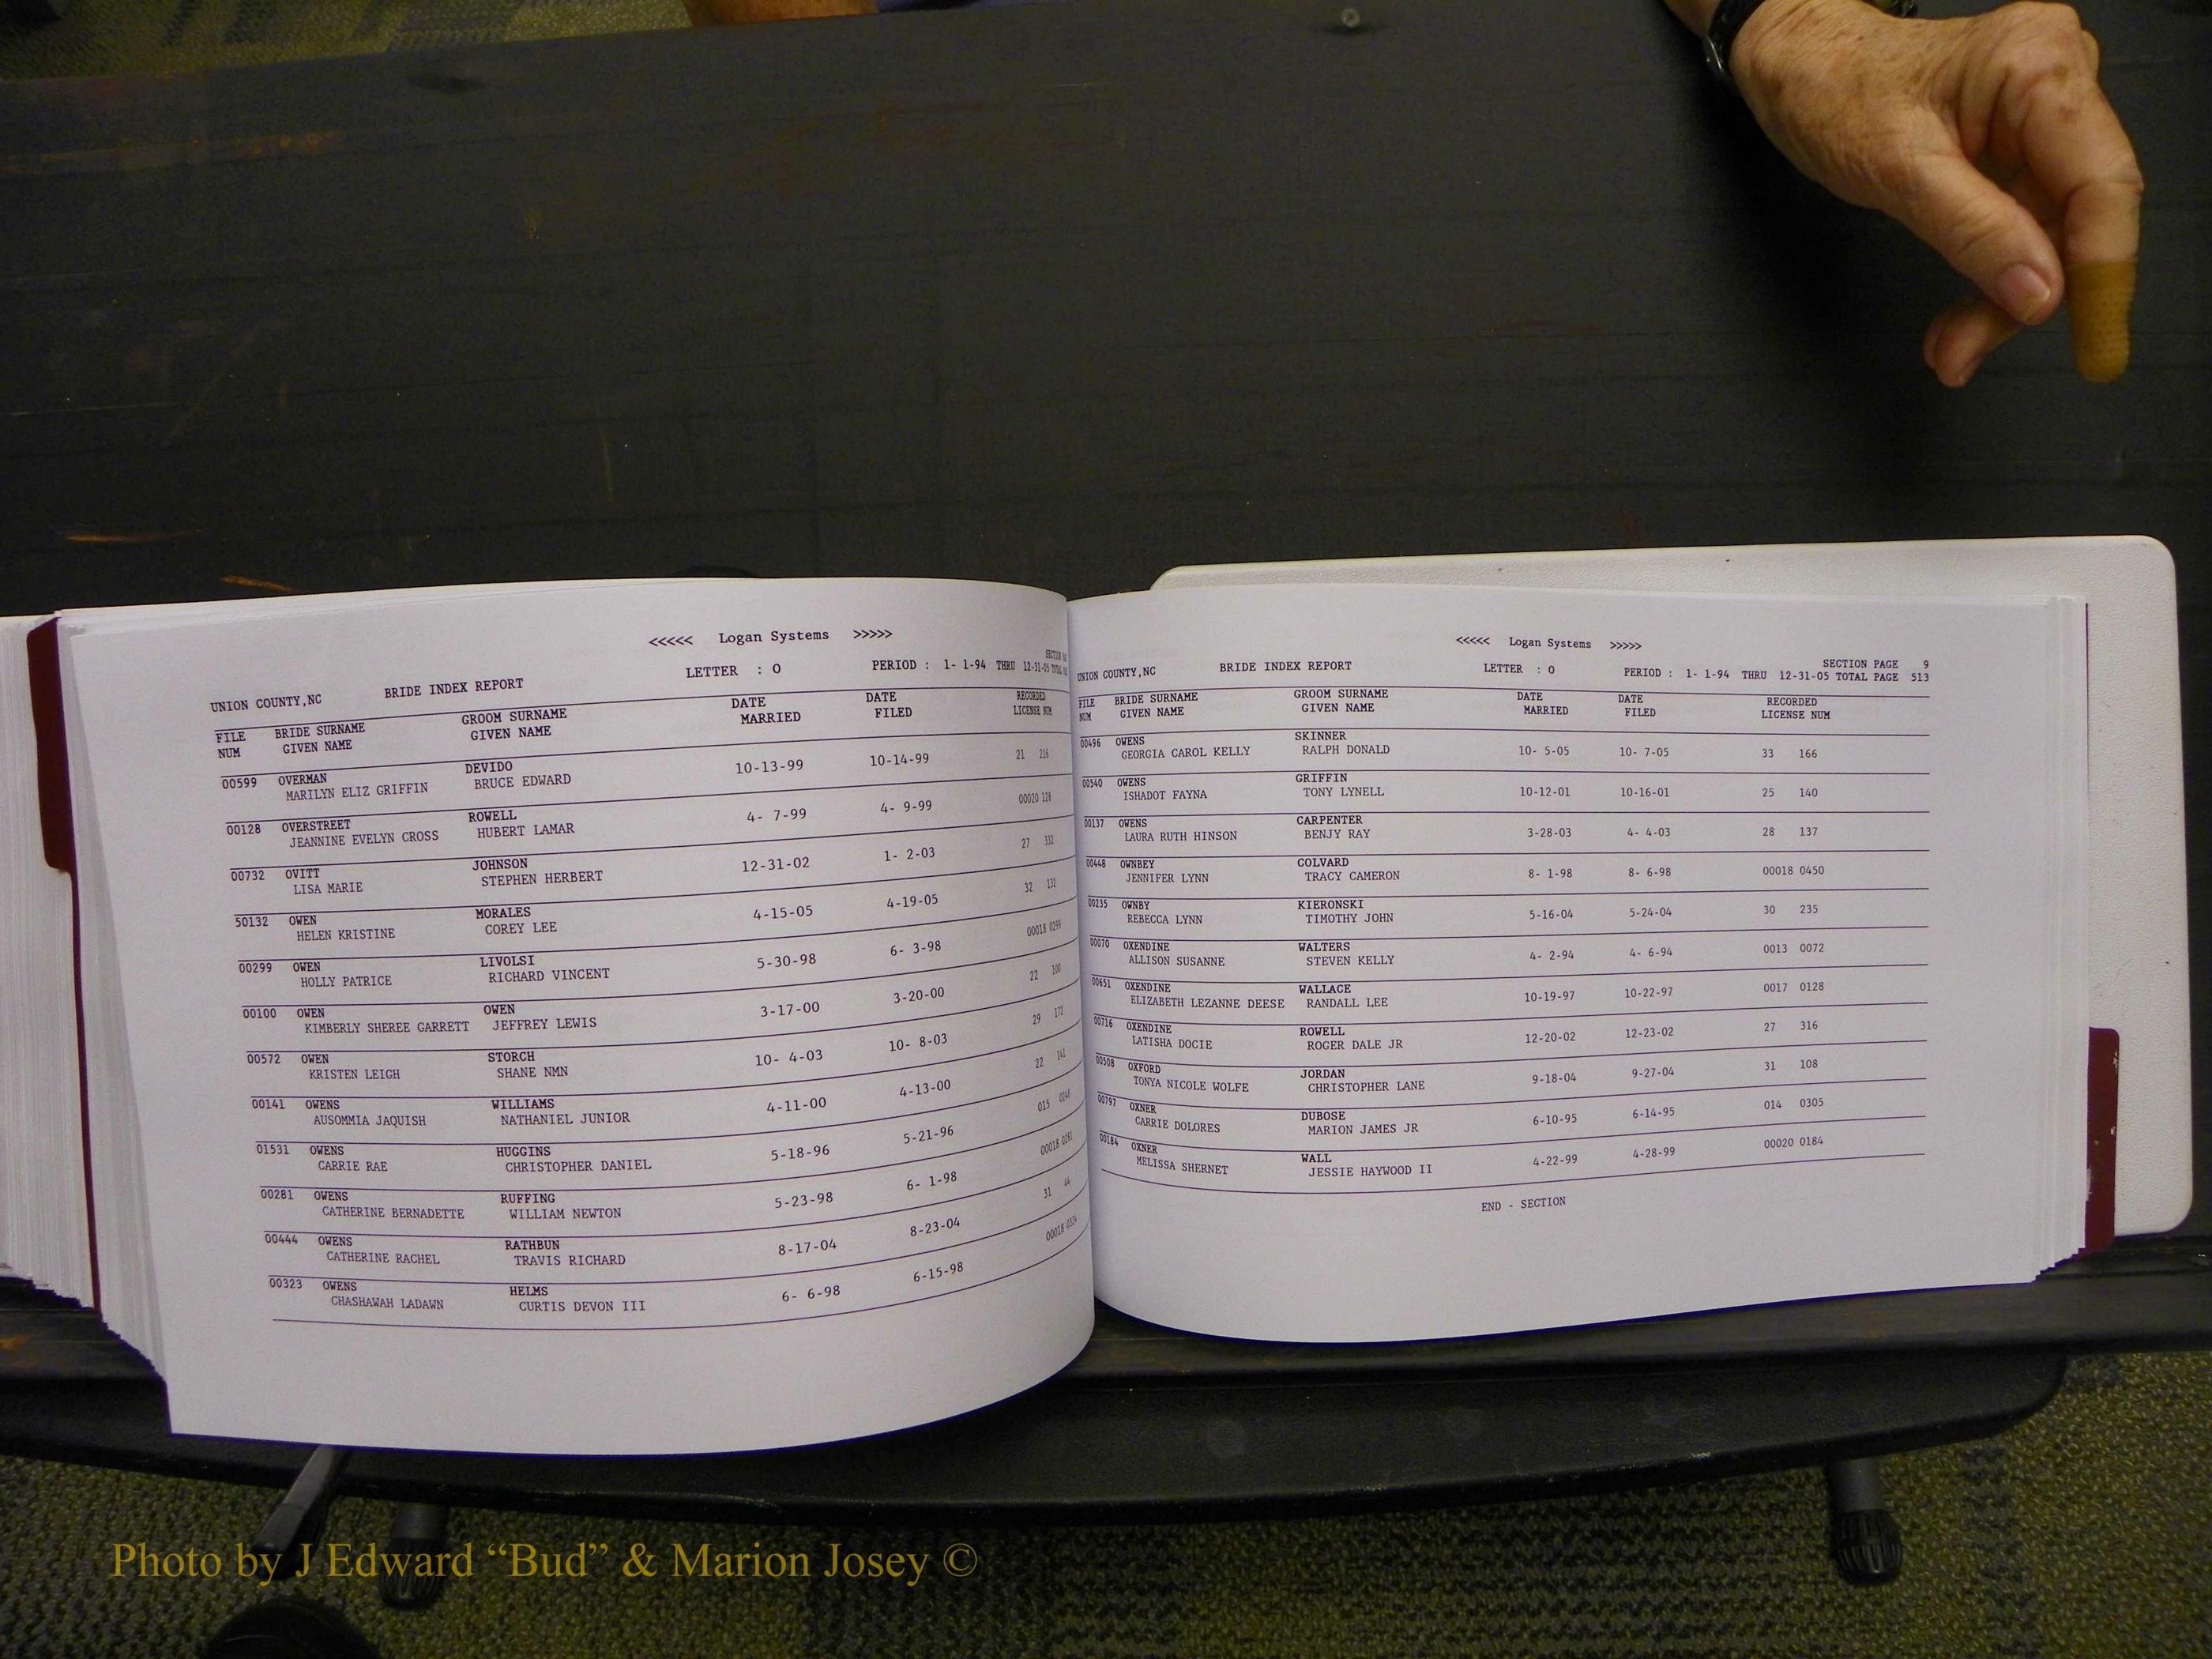 <<<<< Logan Systems >>>>>
UNION COUNTY,NC BRIDE INDEX REPORT LETTER : O PERIOD : 1- 1-94 THRU 12-31-05 TOTAL
FILE NUM BRIDE SURNAME GIVEN NAME GROOM SURNAME GIVEN NAME DATE MARRIED DATE FILED RECORDED LICENSE NUM
00599 OVERMAN DEVIDO 10-13-99 10-14-99 21 216
MARILYN ELIZ GRIFFIN BRUCE EDWARD
00128 OVERSTREET ROWELL 4- 7-99 4- 9-99 00020 128
JEANNINE EVELYN CROSS HUBERT LAMAR
00732 OVITT JOHNSON 12-31-02 1- 2-03 27 332
LISA MARIE STEPHEN HERBERT
50132 OWEN MORALES 4-15-05 4-19-05 32 132
HELEN KRISTINE COREY LEE
00299 OWEN LIVOLSI 5-30-98 6- 3-98 00018 0299
HOLLY PATRICE RICHARD VINCENT
00100 OWEN OWEN 3-17-00 3-20-00 22 100
KIMBERLY SHEREE GARRETT JEFFREY LEWIS
00572 OWEN STORCH 10- 4-03 10- 8-03 29 172
KRISTEN LEIGH SHANE NMN
00141 OWENS WILLIAMS 4-11-00 4-13-00 22 141
AUSOMMIA JAQUISH NATHANIEL JUNIOR
01531 OWENS HUGGINS 5-18-96 5-21-96 015
CARRIE RAE CHRISTOPHER DANIEL
00281 OWENS RUFFING 5-23-98 6- 1-98 00018 0281
CATHERINE BERNADETTE WILLIAM NEWTON
00444 OWENS RATHBUN 8-17-04 8-23-04 31 44
CATHERINE RACHEL TRAVIS RICHARD
00323 OWENS HELMS 6- 6-98 6-15-98 00018
CHASHAWAH LADAWN CURTIS DEVON III
<<<<< Logan Systems >>>>>
SECTION PAGE 9
UNION COUNTY,NC BRIDE INDEX REPORT LETTER : O PERIOD : 1- 1-94 THRU 12-31-05 TOTAL PAGE 513
FILE NUM BRIDE SURNAME GIVEN NAME GROOM SURNAME GIVEN NAME DATE MARRIED DATE FILED RECORDED LICENSE NUM
00496 OWENS SKINNER 10- 5-05 10- 7-05 33 166
GEORGIA CAROL KELLY RALPH DONALD
00540 OWENS GRIFFIN 10-12-01 10-16-01 25 140
ISHADOT FAYNA TONY LYNELL
00137 OWENS CARPENTER 3-28-03 4- 4-03 28 137
LAURA RUTH HINSON BENJY RAY
00448 OWNBEY COLVARD 8- 1-98 8- 6-98 00018 0450
JENNIFER LYNN TRACY CAMERON
00235 OWNBY KIERONSKI 5-16-04 5-24-04 30 235
REBECCA LYNN TIMOTHY JOHN
00070 OXENDINE WALTERS 4- 2-94 4- 6-94 0013 0072
ALLISON SUSANNE STEVEN KELLY
00651 OXENDINE WALLACE 10-19-97 10-22-97 0017 0128
ELIZABETH LEZANNE DEESE RANDALL LEE
00716 OXENDINE ROWELL 12-20-02 12-23-02 27 316
LATISHA DOCIE ROGER DALE JR
00508 OXFORD JORDAN 9-18-04 9-27-04 31 108
TONYA NICOLE WOLFE CHRISTOPHER LANE
00797 OXNER DUBOSE 6-10-95 6-14-95 014 0305
CARRIE DOLORES MARION JAMES JR
00184 OXNER WALL 4-22-99 4-28-99 00020 0184
MELISSA SHERNET JESSIE HAYWOOD II
END - SECTION
Photo by J Edward “Bud” & Marion Josey ©